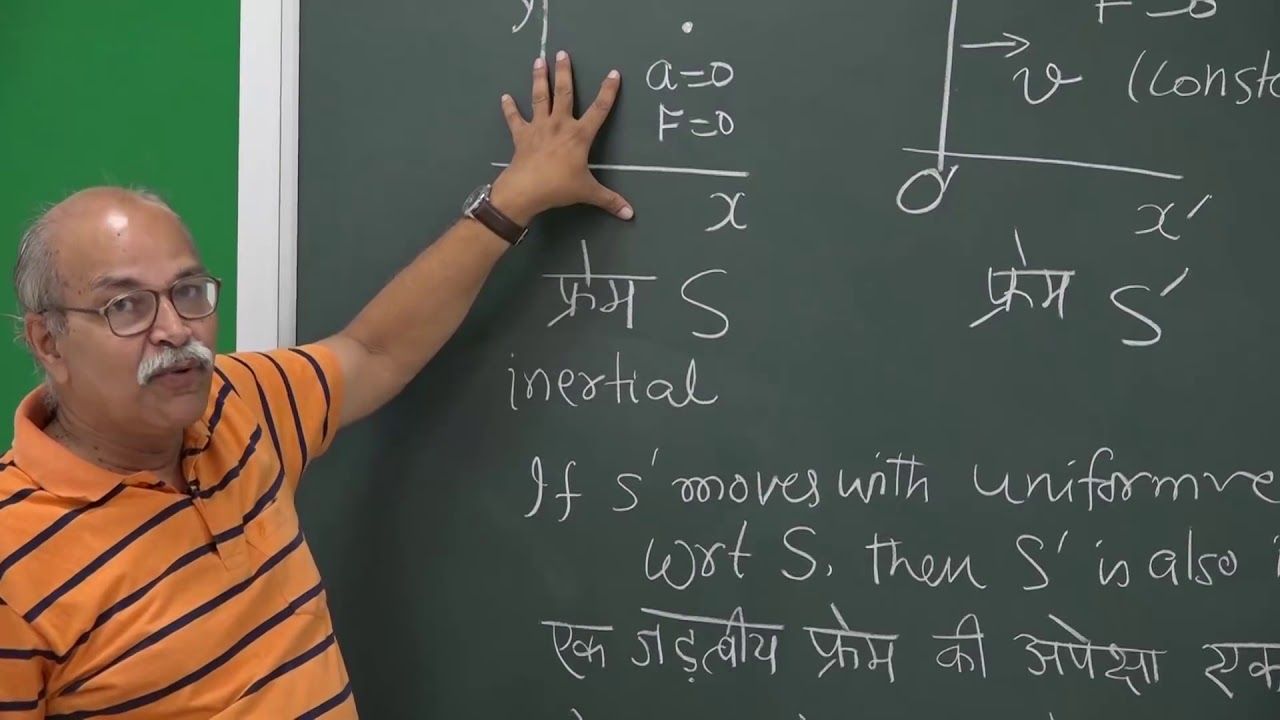 y
a=0
F=0
x
फ्रेम S
inertial
F=0
v (Consta
O'
x'
फ्रेम S'
If s' moves with uniformve
wrt S, then S' is also i
एक जड़त्वीय फ्रेम की अपेक्षा एक